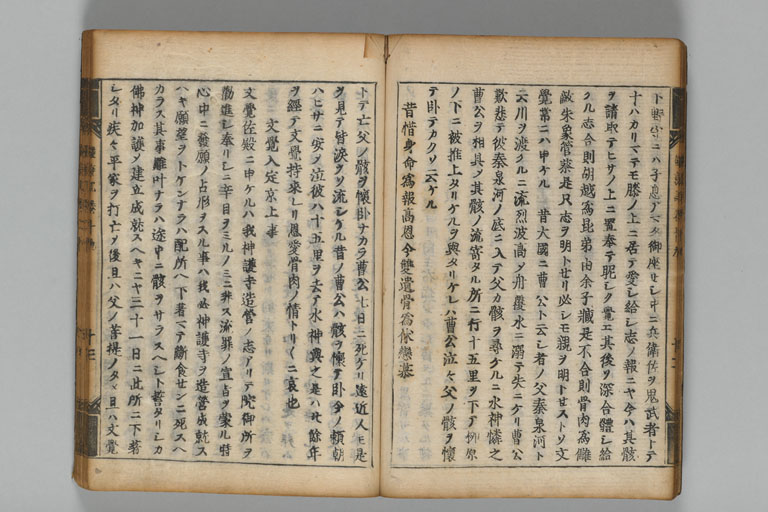 ト野守ニハ子息アマタ御座セシ中ニ兵衛佐ヲ鬼武者トテ
十ハカリマテモ膝ノ上ニ居テ愛シ給シ志ノ報ニヤ今ハ其骸
ヲ請取テヒサノ上ニ置奉テ昵シク覚エ其後ヲ深合體シ給
クル志合則胡越為昆弟由余子臧是不合則骨肉為讎
敵朱象管蔡是只志ヲ明トせリ必シモ親ヲ明トセストソ文
覚常ニハ申ケル 昔大國ニ曹公ト云シ者ノ父秦泉河ト
云川ヲ渡クルニ流烈波高ク舟覆水ニ溺テ失ニケリ曹公
歎悲テ彼秦泉河ノ底ニ入テ父カ骸ヲ尋ケルニ水神憐之
曹公ヲ相具ノ其骸ノ流寄タル所ニ行十五里ヲ下テ柳原
ノ下ニ被推上タリケルヲ與タリケレハ曹公泣々父ノ骸ヲ懐
テ卧テカクソ云ケル
昔惜身命為報高恩今雙遺骨為休戀慕
トテ亡父ノ骸ヲ懐卧ナカラ曹公七日ニ死ケリ遠近人モ是
ヲ見テ皆涙ヲソ流シケル昔ノ曹公ハ骸ヲ懐テ卧今ノ頼朝
ハヒサニ安ノ泣彼ハ十五里ヲ去テ水神與之是ハ廿餘年
ヲ經テ文覺持來レリ恩愛骨肉ノ情トリ〱ニ哀也
文覺入定京上事
文覺佐殿ニ申ケルハ我神護寺造營ノ志アリテ院御所ヲ
勸進シ奉リシニ辛目ヲミルノミニ非ス流罪ノ宣旨ヲ蒙ル時
心中ニ發願ノ占形ヲスル事ハ我必神護寺ヲ造營成就ス
ハキ願望ヲトケンナラハ配所ヘ下著マテ斷食せンニ死スヘ
カラス其事難叶ナラハ途中ニ骸ヲサラスヘシト誓タリシカ
佛神加護ノ建立成就スヘキニヤ三十一日ニ此所ニ下著
シタリ疾々平家ヲ打亡ヲ後且ハ父ノ菩提ノタメ且ハ文覺